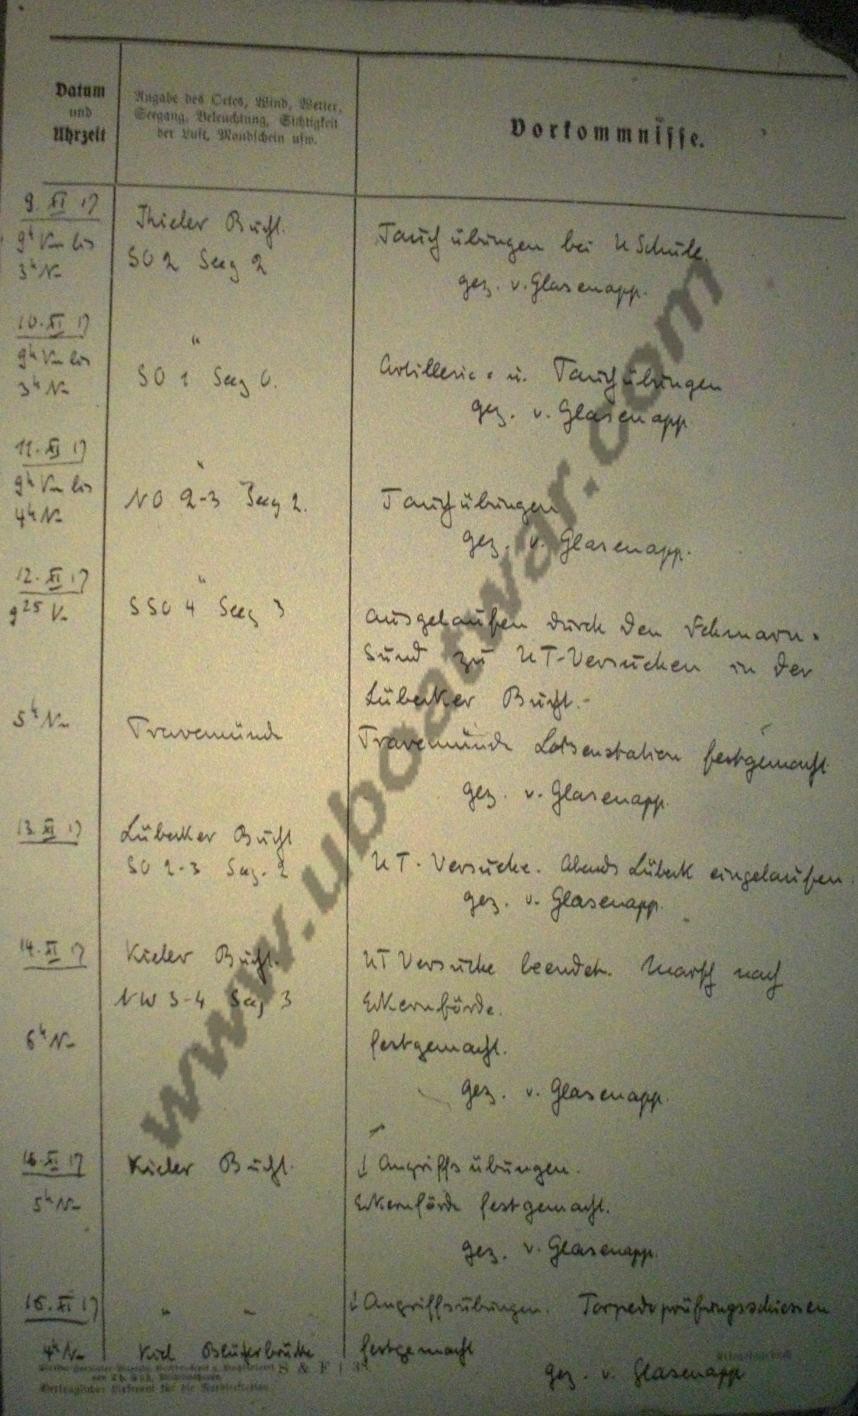 Datum
und
Uhrzeit
Angabe des Ortes, Wind, Wetter,
Seegang, Beleuchtung, Sichtigkeit
der Luft, Mondschein usw.
Vorkommnisse.
9. XI 17
9h Vm bis
3h Nm
Kieler Bucht.
SO 2 Seeg 2
Tauchübungen bei U Schule.
gez. v. Glasenapp.
10. XI 17
9h Vm bis
3h Nm
"
SO 1 Seeg 0.
Artillerie- u. Tauchübungen
gez. v. Glasenapp
11. XI 17
9h Vm bis
4h Nm
"
NO 2-3 Seeg 2.
Tauchübungen
gez. v. Glasenapp.
12. XI 17
9 25 V.
"
SSO 4 Seeg 3
Ausgelaufen durch den Fehmarn-
Sund zu UT-Versuchen in der
Lübecker Bucht.-
5h Nm
Travemünde
Travemünde Lotsenstation festgemacht
gez. v. Glasenapp.
13. XI 17
Lübecker Bucht
SO 2-3 Seeg. 2
UT-Versuche. Abends Lübeck eingelaufen.
gez. v. Glasenapp.
14. XI 17
Kieler Bucht.
NW 3-4 Seeg 3
UT Versuche beendet. Marsch nach
Eckernförde.
6h Nm
festgemacht.
gez. v. Glasenapp.
XI 17
Kieler Bucht.
Angriffsübungen.
5h Nm
Eckernförde festgemacht.
gez. v. Glasenapp.
XI 17
" "
Angriffsübungen. Torpedoprüfungsschiessen
4h Nm
Kiel Blücherbrücke
festgemacht
gez. v. Glasenapp
S & F
www.uboatwar.com